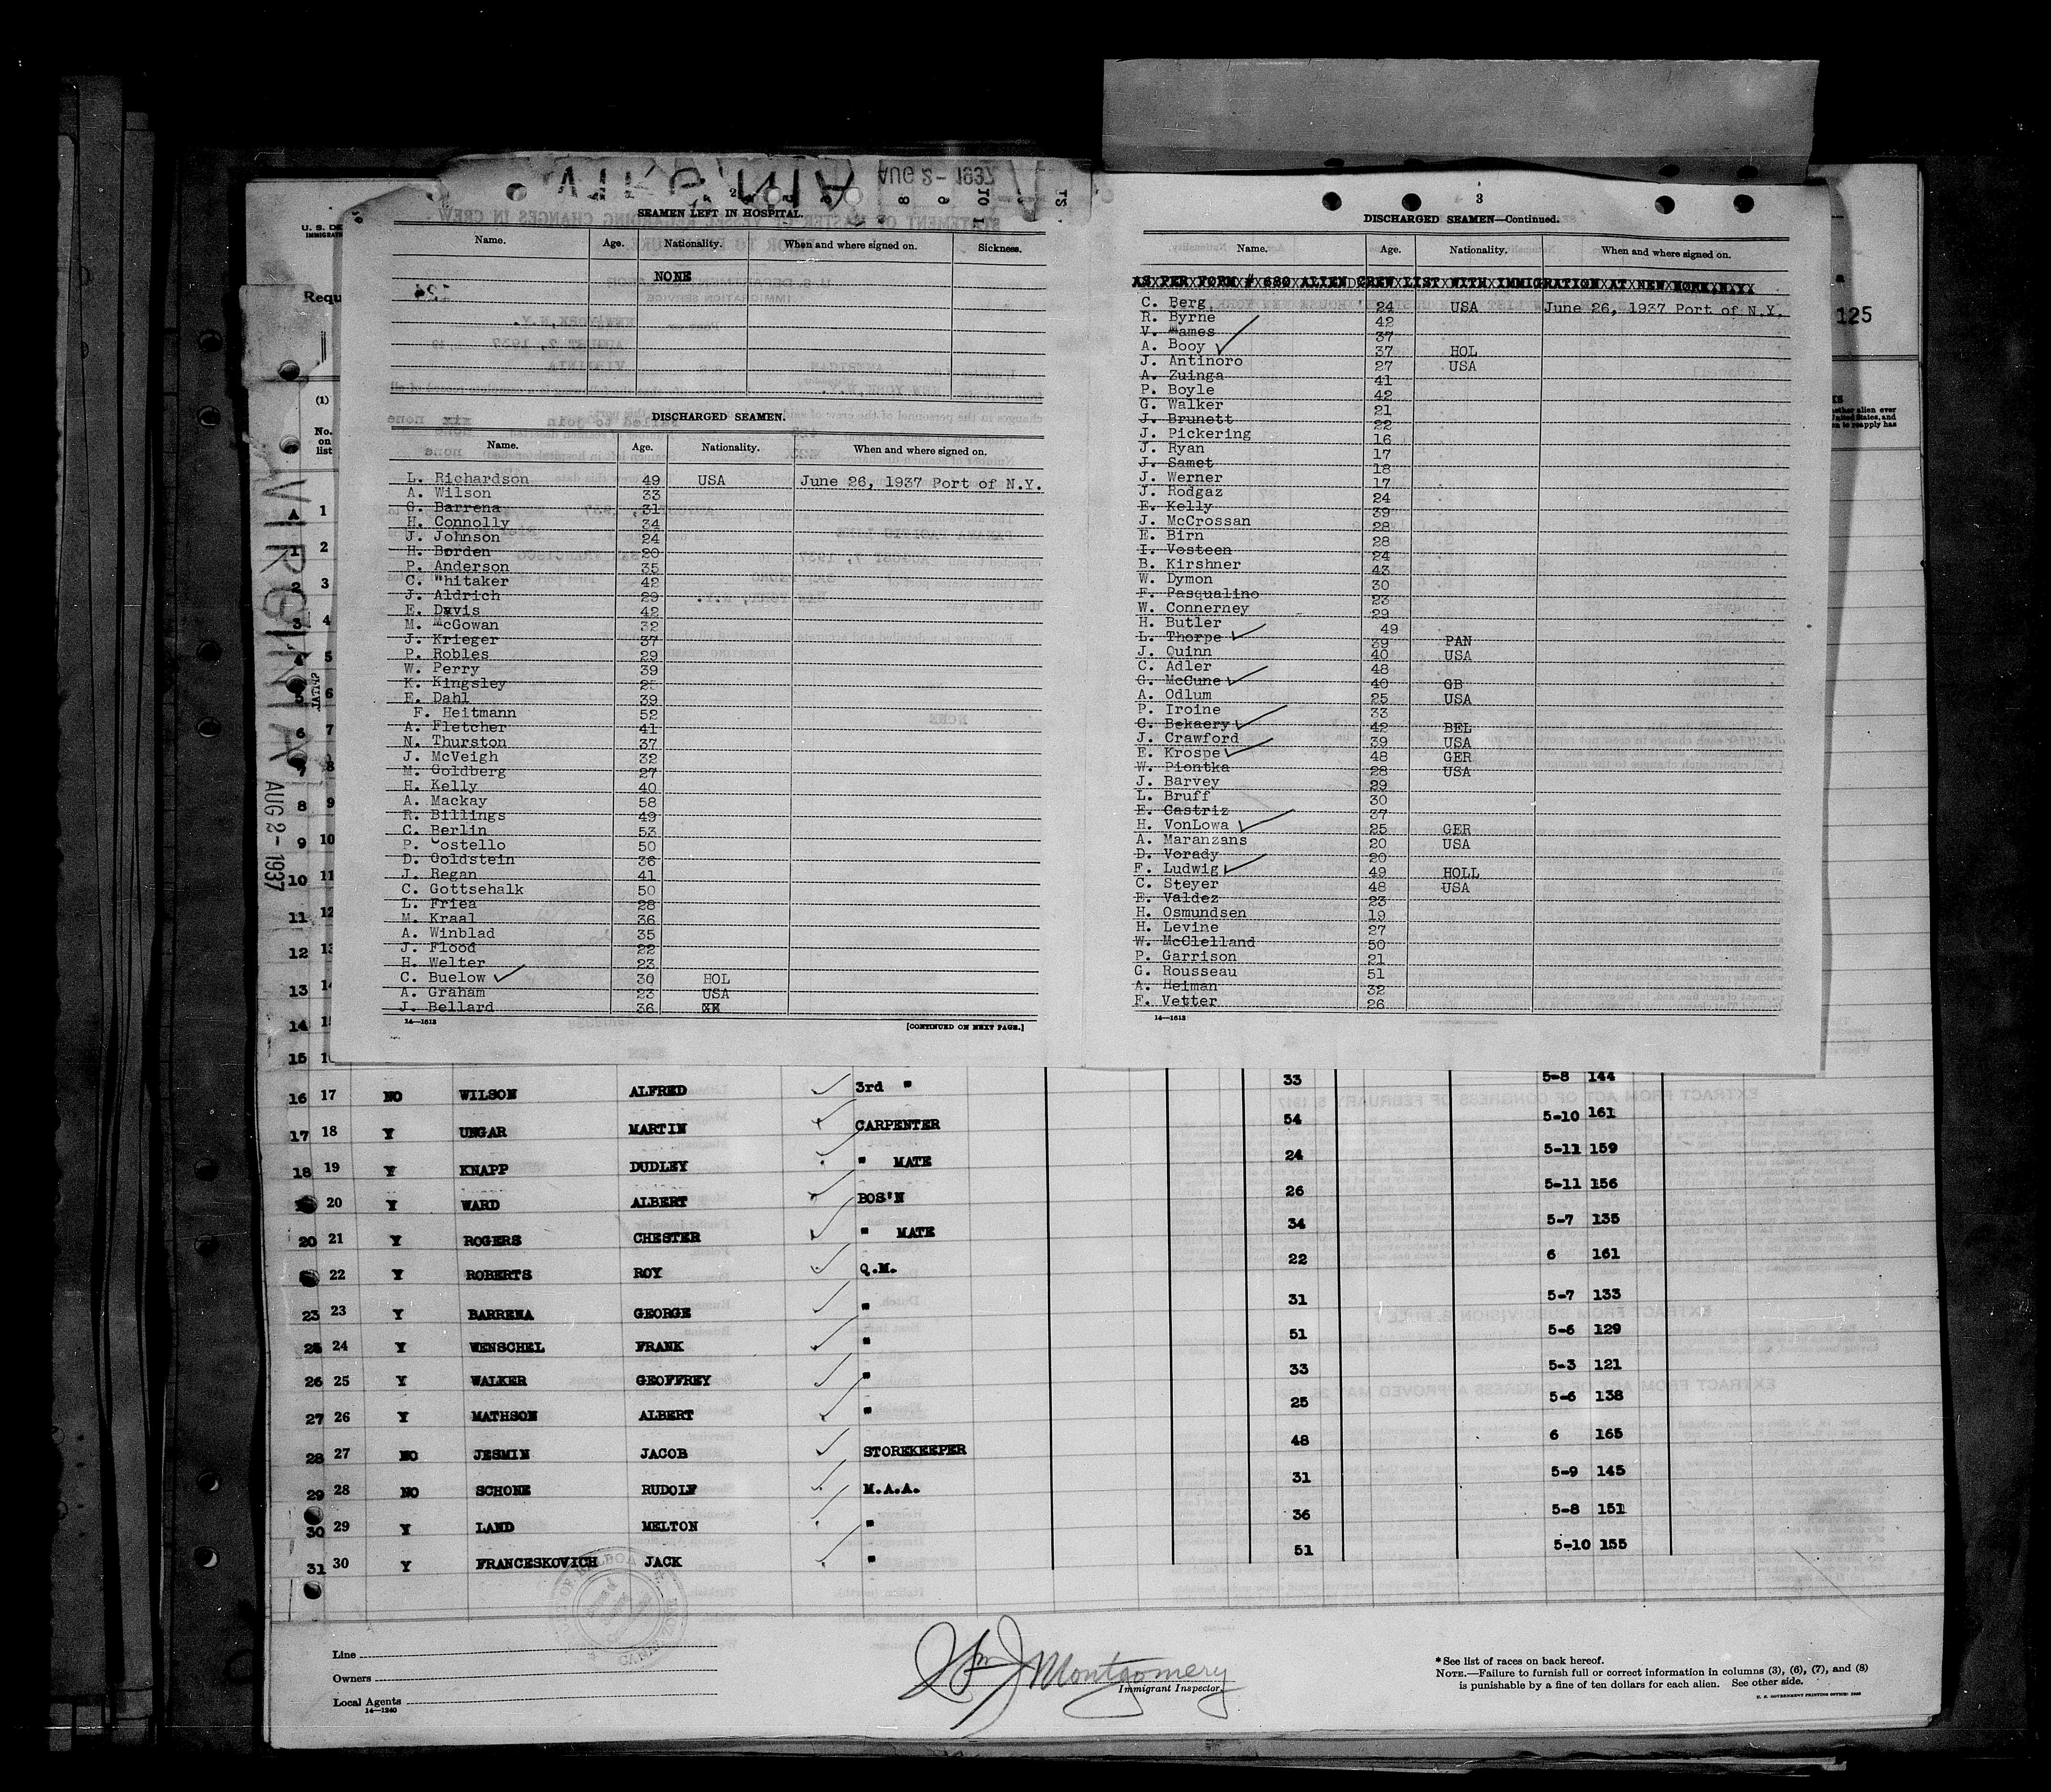 AUG 2 - 1937
2
SEAMEN LEFT IN HOSPITAL.
Name. Age. Nationality. When and where signed on. Sickness.
NONE
DISCHARGED SEAMEN.
Name. Age. Nationality. When and where signed on.
L. Richardson 49 USA June 26, 1937 Port of N.Y.
A. Wilson 33
G. Barrena 31
H. Connolly 34
J. Johnson 24
H. Borden 20
P. Anderson 35
C. Whitaker 42
J. Aldrich 29
E. Davis 42
M. McGowan 32
J. Krieger 37
P. Robles 29
W. Perry 39
K. Kingsley
E. Dahl 39
F. Heitmann 52
A. Fletcher 41
N. Thurston 37
J. McVeigh 32
M. Goldberg 27
H. Kelly 40
A. Mackay 58
R. Billings 49
C. Berlin 53
P. Costello 50
D. Goldstein 36
J. Regan 41
C. Gottsehalk 50
L. Friea 28
M. Kraal 36
A. Winblad 35
J. Flood 22
H. Welter 23
C. Buelow ✓ 30 HOL
A. Graham 23 USA
J. Bellard 36
14—1613
[CONTINUED ON NEXT PAGE.]
3
DISCHARGED SEAMEN—Continued.
Name. Age. Nationality. When and where signed on.
AS PER FORM # 680 ALIEN CREW LIST WITH IMMIGRATION AT NEW YORK,N.Y.
C. Berg 24 USA June 26, 1937 Port of N.Y.
R. Byrne 42
V. Mames 37
A. Booy ✓ 37 HOL
J. Antinoro 27 USA
A. Zuinga 41
P. Boyle 42
G. Walker 21
J. Brunett 22
J. Pickering 16
J. Ryan 17
J. Samet 18
J. Werner 17
J. Rodgaz 24
E. Kelly 39
J. McCrossan 28
E. Birn 28
I. Vosteen 24
B. Kirshner 43
W. Dymon 30
F. Pasqualino 23
W. Connerney 29
H. Butler 49
L. Thorpe ✓ 39 PAN
J. Quinn 40 USA
C. Adler 48
G. McCune ✓ 40 GB
A. Odlum 25 USA
P. Iroine 33
C. Bekaery ✓ 42 BEL
J. Crawford 39 USA
E. Krospe ✓ 48 GER
W. Piontka 28 USA
J. Barvey 29
L. Bruff 30
E. Castriz 37
H. VonLowa ✓ 25 GER
A. Maranzans 20 USA
D. Vorady 20
F. Ludwig ✓ 49 HOLL
C. Steyer 48 USA
E. Valdez 23
H. Osmundsen 19
H. Levine 27
W. McClelland 50
P. Garrison 21
G. Rousseau 51
A. Heiman 32
F. Vetter 26
14—1613
125
U. S. DE
IMMIGRAT
Requ
(1)
No.
on
list
VIRGINIA AUG 2 - 1937
1
1 2
2 3
3 4
4 5
5 6
6 7
7 8
8 9
9 10
10 11
11 12
12 13
13 14
14
15
16 17 NO WILSON ALFRED ✓ 3rd " 33 5-8 144
17 18 Y UNGAR MARTIN ✓ CARPENTER 54 5-10 161
18 19 Y KNAPP DUDLEY ✓ " MATE 24 5-11 159
20 Y WARD ALBERT ✓ BOS'N 26 5-11 156
20 21 Y ROGERS CHESTER ✓ " MATE 34 5-7 135
22 Y ROBERTS ROY ✓ Q.M. 22 6 161
23 23 Y BARRENA GEORGE ✓ " 31 5-7 133
25 24 Y WENSCHEL FRANK ✓ " 51 5-6 129
26 25 Y WALKER GEOFFREY ✓ " 33 5-3 121
27 26 Y MATHSON ALBERT ✓ " 25 5-6 138
28 27 NO JESMIN JACOB ✓ STOREKEEPER 48 6 165
29 28 NO SCHONE RUDOLF ✓ M.A.A. 31 5-9 145
30 29 Y LAND MELTON ✓ " 36 5-8 151
31 30 Y FRANCESKOVICH JACK ✓ " 51 5-10 155
Line
Owners
Local Agents
14—1240
Wm J Montgomery
Immigrant Inspector.
*See list of races on back hereof.
NOTE.—Failure to furnish full or correct information in columns (3), (6), (7), and (8)
is punishable by a fine of ten dollars for each alien. See other side.